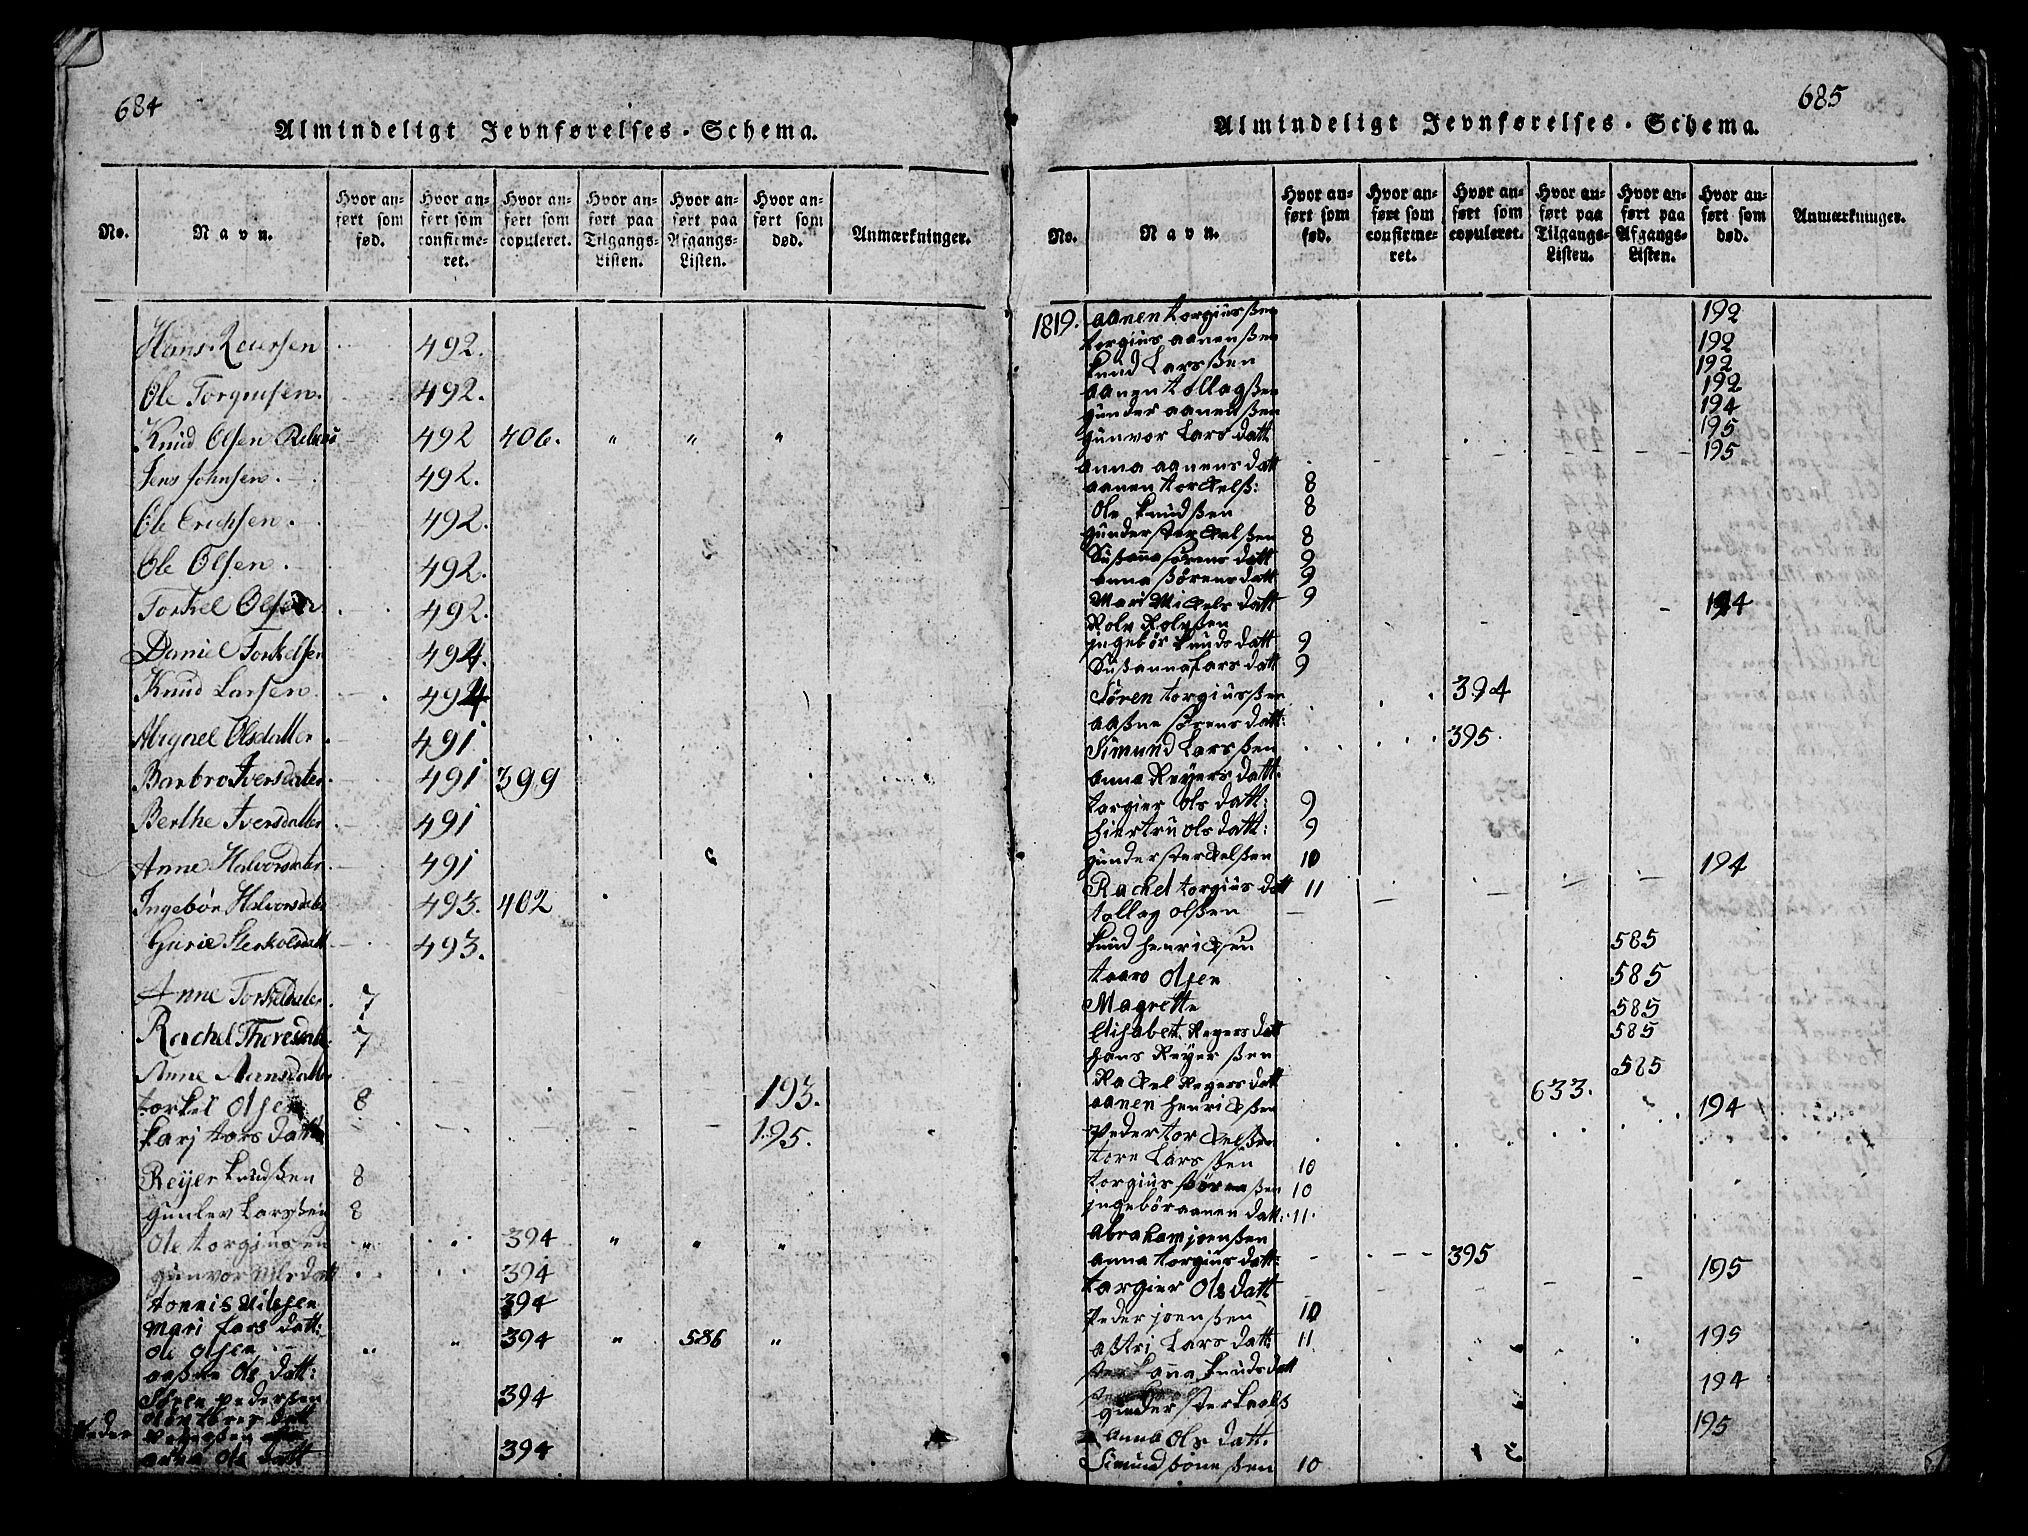 684
Almindeligt Jevnførelses-Schema.
No.
Navn.
Hvor anført som fød.
Hvor anført som confirmeret.
Hvor anført som copuleret.
Hvor anført paa Tilgangs-Listen.
Hvor anført paa Afgangs-Listen.
Hvor anført som død.
Anmærkninger.
Hans Reiersen 492.
Ole Torgiusen. 492.
Knud Olsen 492 406. " " "
Jens Johnsen. 492.
Ole Erichsen. 492.
Ole Olsen. 492.
Torkel Olsen 492.
Daniel Torkelsen 494.
Knud Larsen 494
Olsdatter 491
Barbro Iversdatter. 491 399
Berthe Iversdatter 491
Anne Halvorsdatter. 491
Ingebør Halvorsdatter 493. 402
Gurie 493.
Anne Torkeldatter. 7
Rachel 7
Anne Aanensdatter 193.
torkel Olsen 8
karj tarsdatter 195.
Reyer knudßen 8
Gunlev Larsßen 8
Ole torgiusen " 394 " " "
gunvor datt 394
tonnis Nilssen 394
Mari Lars datt:
Ole Olsen " " 394 " 586 "
aaßne Ols datt:
pedersen 394
Peder
anna Ols datt 394
685
Almindeligt Jevnførelses-Schema.
No.
Navn.
Hvor anført som fød.
Hvor anført som confirmeret.
Hvor anført som copuleret.
Hvor anført paa Tilgangs-Listen.
Hvor anført paa Afgangs-Listen.
Hvor anført som død.
Anmærkninger.
1819. aanen torgiusßen 192
torgius aanenßen 192
knud Larsßen 192
aanen tollagßen 192
gunder aanenßen 194
gunvor Lars datt 195
anna aanens datt 195
aanen torkelß: 8
Ole knudßen 8
gunder sterkelßen 8
Sußanna sørens datt 9
anna sørens datt 9
Mari Mickels datt 9 194
Rolv Rolvßen
ingebør knuds datt 9
Sußanna Lars datt 9
Søren torgiusßen 394
aaßne sørens datt:
Simund Larsßen 395.
anna Reyers datt:
targier ols datt: 9
hiertru ols datt: 9
gunder sterkelßen 10 194
Rachel torgius datt 11
tollag olßen
knud henricksen 585
taaro Olsen 585
Magrette 585
Elisabet Reyers datt 585
hans Reyerßen
Rackel Reyers datt 633. 585
aanen henrickßen 194
Peder torkelßen
tore Larsßen 10
torgius sørenßen 10
ingebør aanen datt: 11.
abraham joensßen
anna torgius datt: 395 195
targier Ols datt
Peder joenßen 10
astri Lars datt 11 195
anna knuds datt 194
gunder sterkels
anna Ols datt. 195
Simund ßen 10